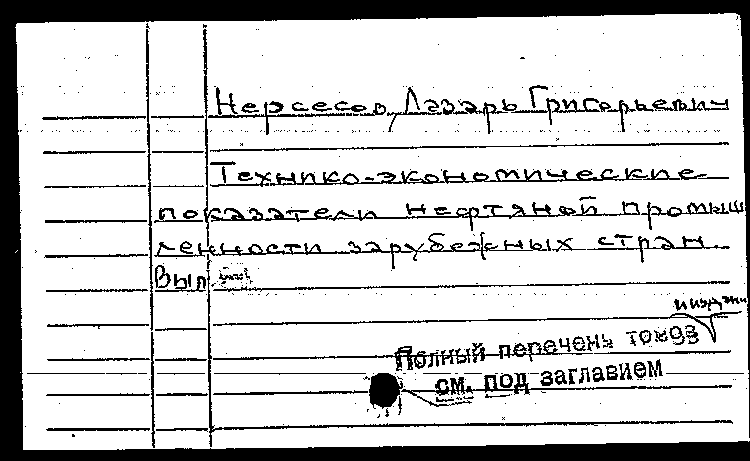 Нерсесов, Лазарь Григорьевич
Технико-экономические
показатели нефтяной промыш
ленности зарубежных стран.
Вып
Полный перечень томов
см. под заглавием